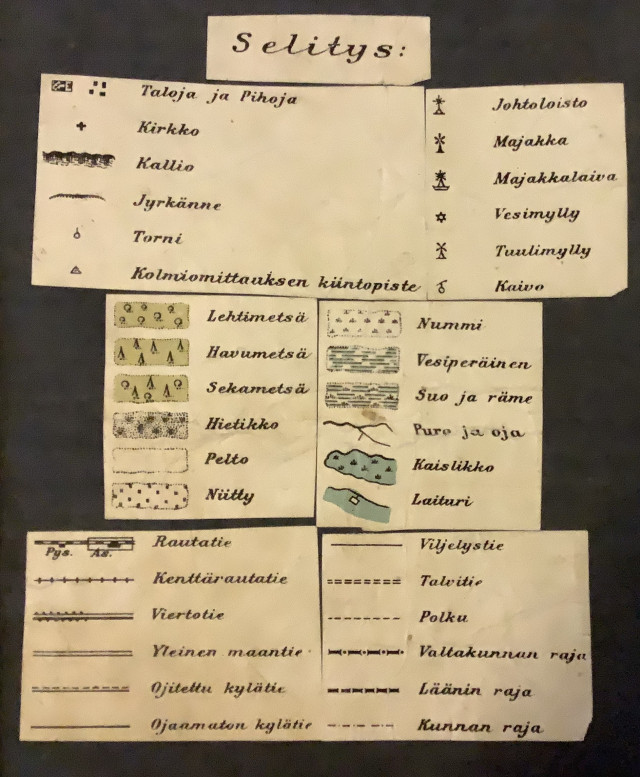 Selitys:
Taloja ja Pihoja
Kirkko
Kallio
Jyrkänne
Torni
Kolmiomittauksen kiintopiste
Johtoloisto
Majakka
Majakkalaiva
Vesimylly
Tuulimylly
Kaivo
Lehtimetsä
Havumetsä
Sekametsä
Hietikko
Pelto
Niitty
Nummi
Vesiperäinen
Suo ja räme
Puro ja oja
Kaislikko
Laituri
Rautatie
Pys. As.
Kenttärautatie
Viertotie
Yleinen maantie
Ojitettu kylätie
Ojaamaton kylätie
Viljelystie
Talvitie
Polku
Valtakunnan raja
Läänin raja
Kunnan raja